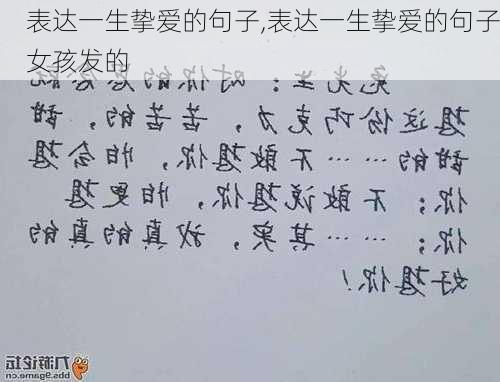 表达一生挚爱的句子,表达一生挚爱的句子
女孩发的
兔先生：对你的思念就
像这份巧克力，苦苦的，甜
甜的……不敢想你，怕会想
你；不敢说想你，怕更想
你；……其实，我真的真的
好想你！
九游论坛
bbs.9game.cn